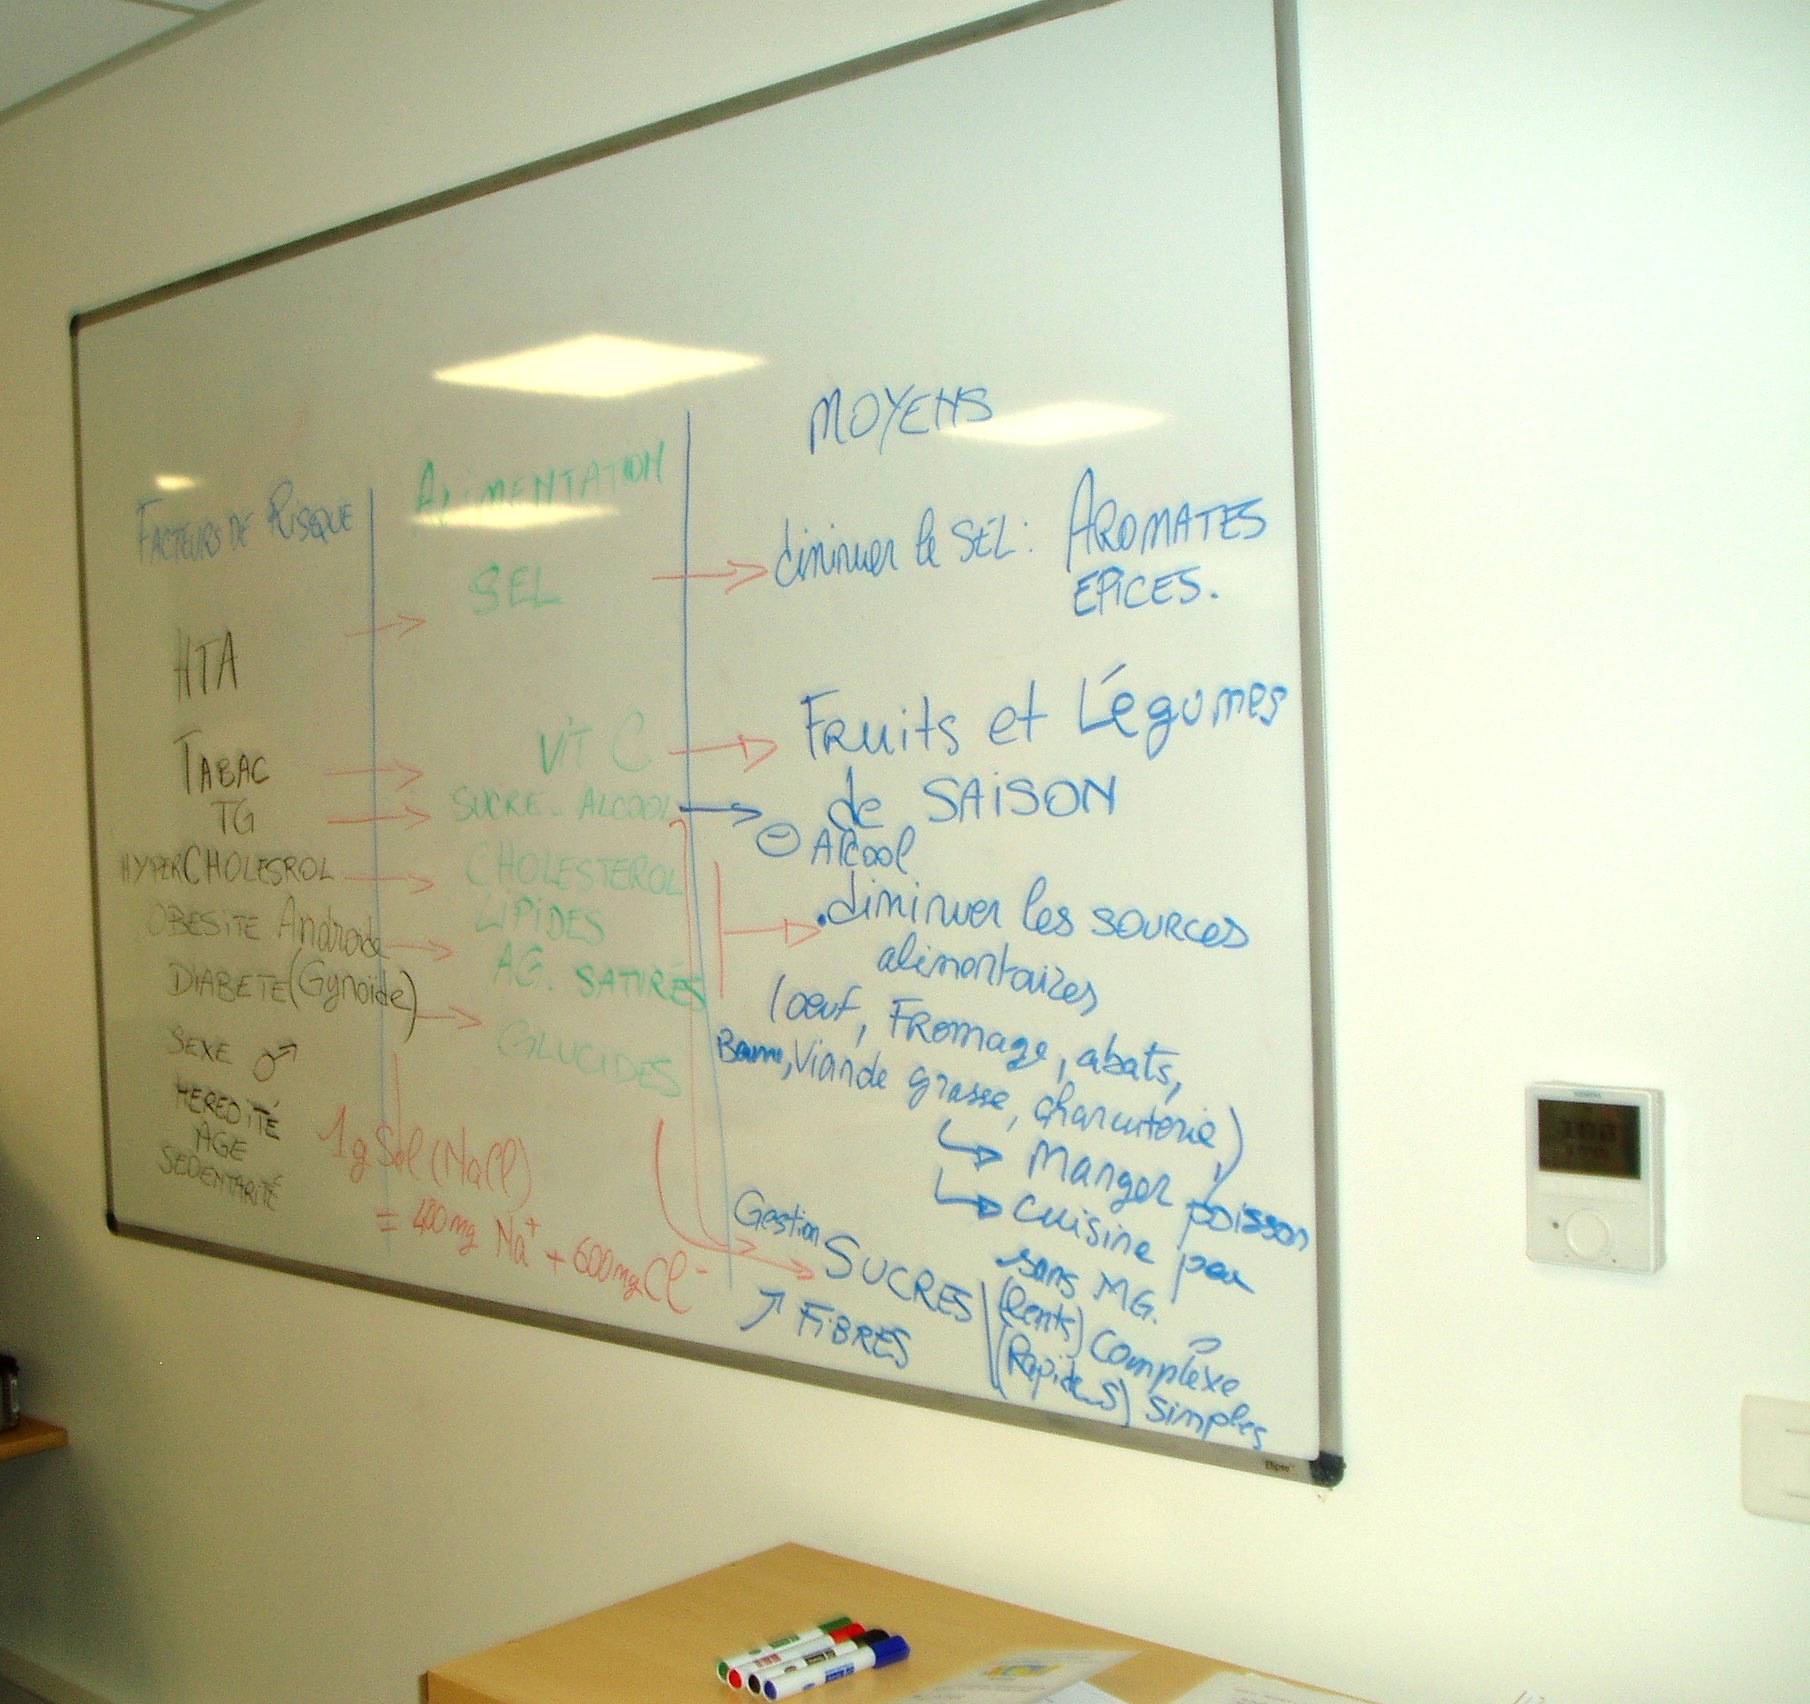 FACTEURS DE RISQUE
HTA
TABAC
TG
HYPERCHOLESROL
OBESITE Androde
DIABETE (Gynoïde)
SEXE ♂
HEREDITÉ
AGE
SEDENTARITÉ
1g Sel (NaCl)
= 400mg Na⁺ + 600mg Cl⁻
ALIMENTATION
SEL
VIT C
SUCRE - ALCOOL
CHOLESTEROL
LIPIDES
AG. SATURÉS
GLUCIDES
MOYENS
diminuer le SEL : AROMATES
EPICES.
Fruits et Légumes
de SAISON
⊖ Alcool
. diminuer les sources
alimentaires
(oeuf, Fromage, abats,
Beurre, Viande grasse, charcuterie)
↳ Manger poisson
↳ cuisine peu,
sans MG.
Gestion SUCRES (lents) complèxe
(Rapides) simples
↗ FIBRES
SIEMENS